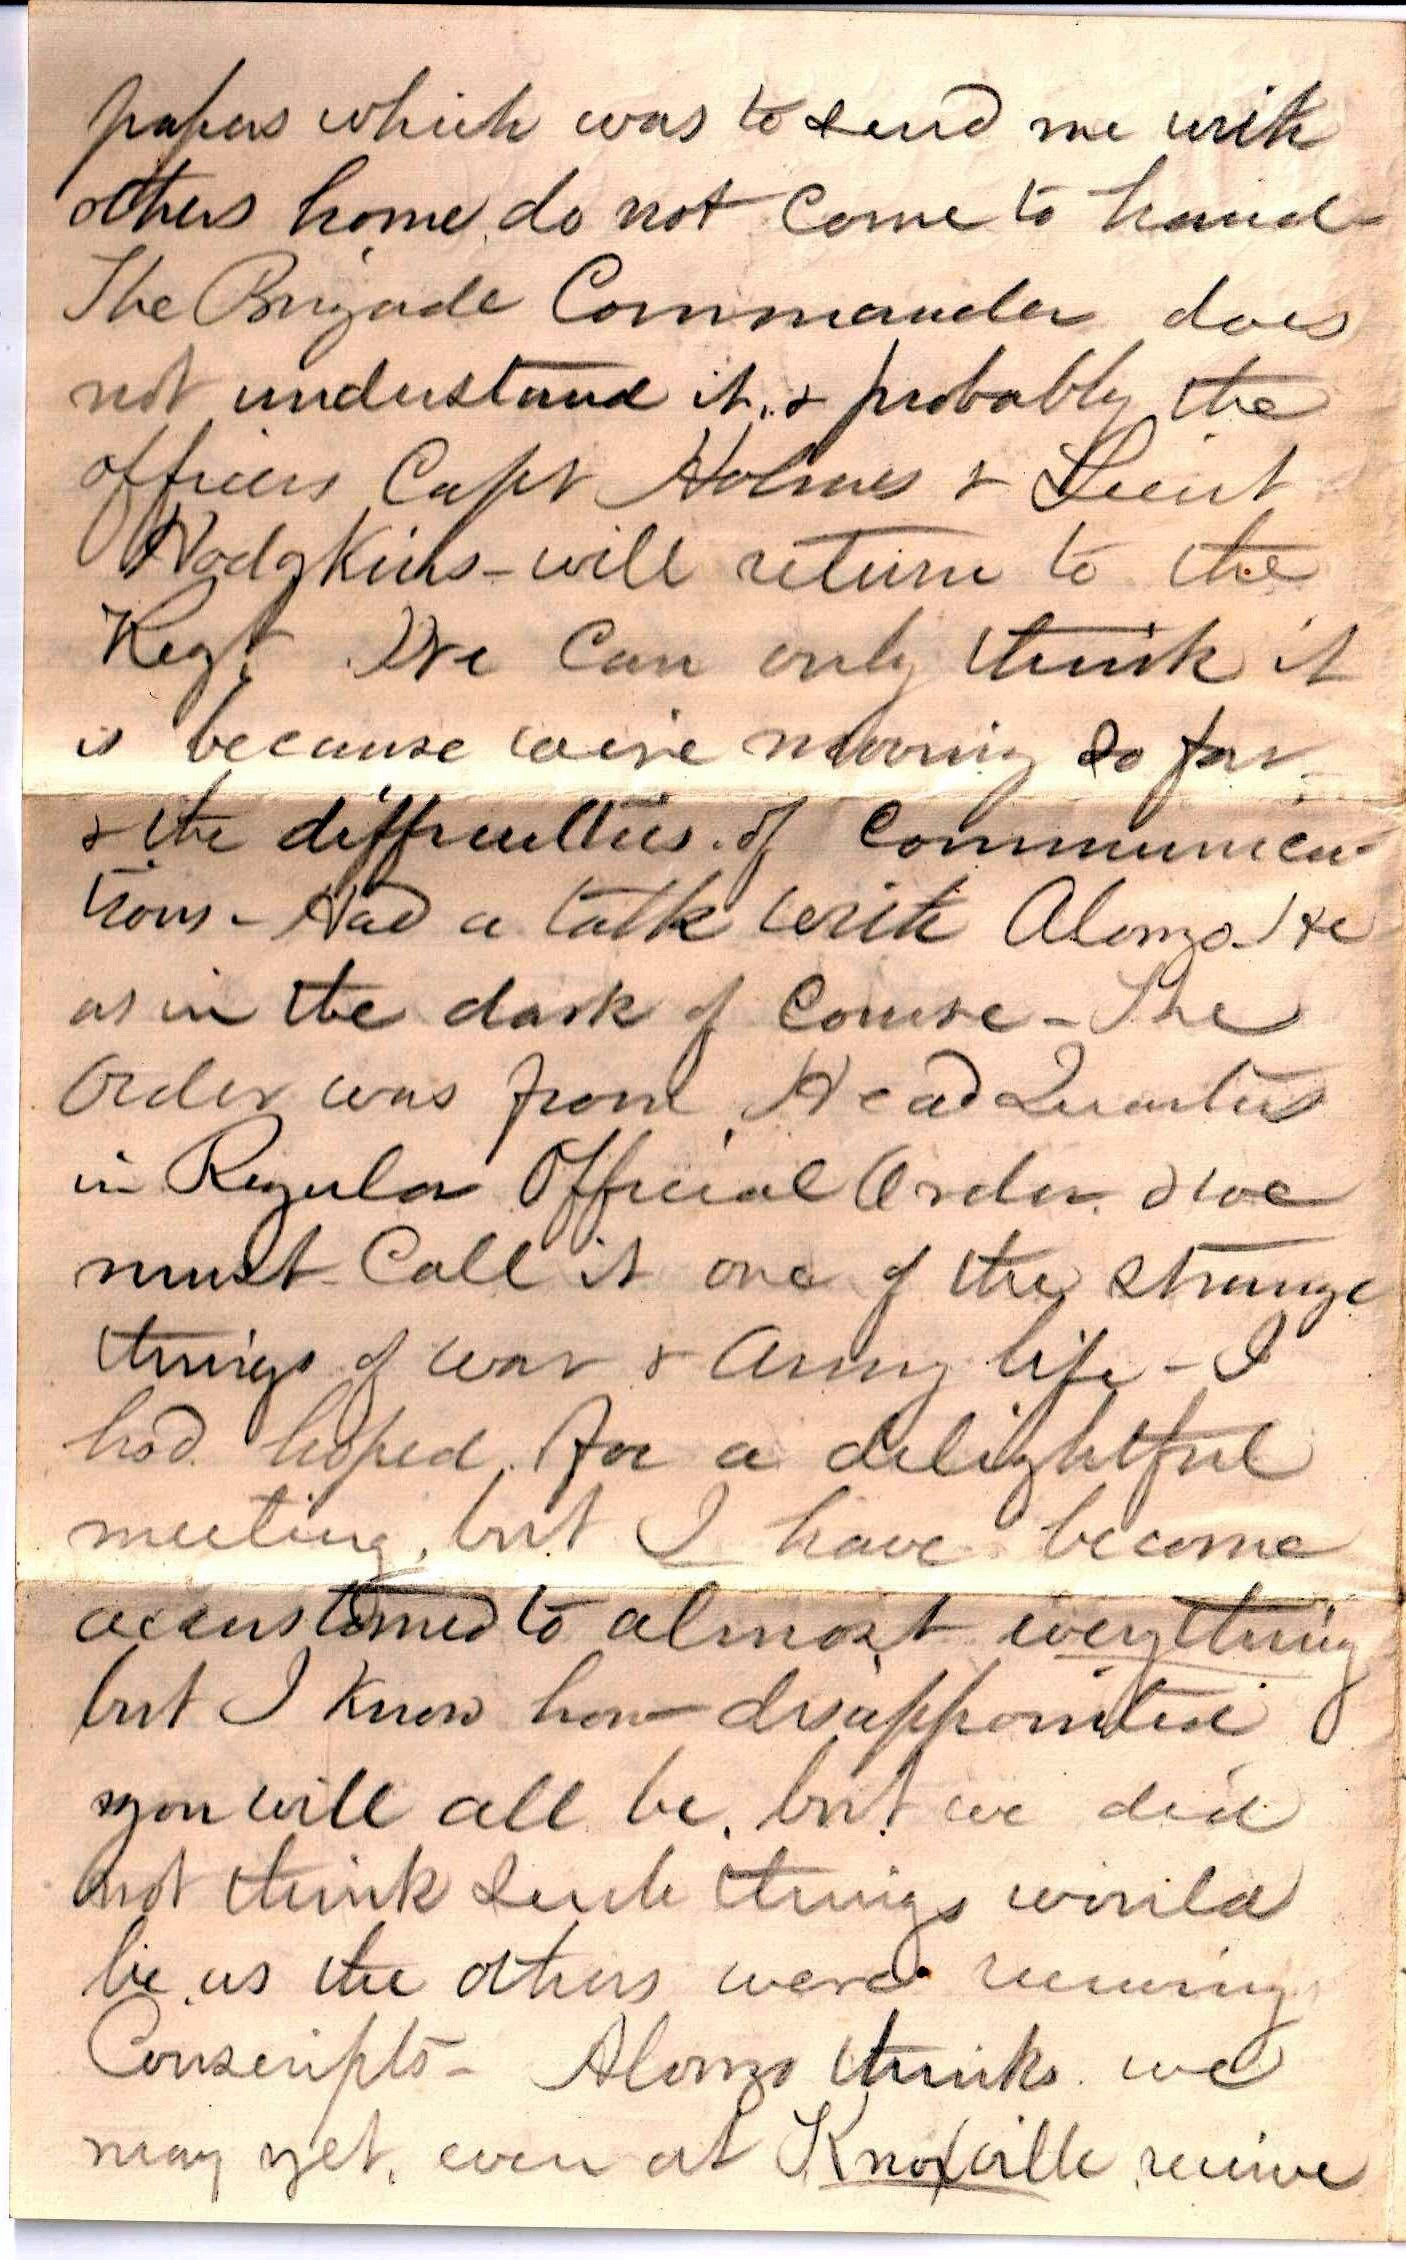 papers which was to send me with
others home, do not come to hand -
The Brigade Commander does
not understand it, & probably the
officers Capt Holmes & Lieut
Hodgkins - will return to the
Regt. We can only think it
is because we're moving so far
& the difficulties of communica-
tions - Had a talk with Alonzo - He
as in the dark of course - The
Order was from Head Quarters
in Regular Official Order & we
must call it one of the strange
things of war & Army life - I
had hoped for a delightful
meeting, but I have become
accustomed to almost everything
but I know how disappointed
you will all be, but we did
not think such things would
be, as the others were receiving
Conscripts - Alonzo thinks we
may yet, even at Knoxville receive